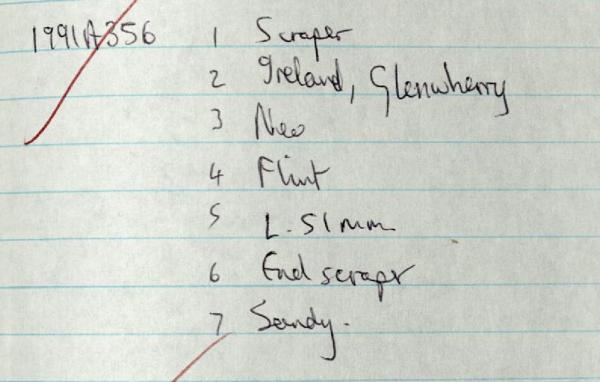 1991A356 1 Scraper
2 Ireland, Glenwherry
3 Neo
4 Flint
5 L. 51mm
6 End scraper
7 Sandy.